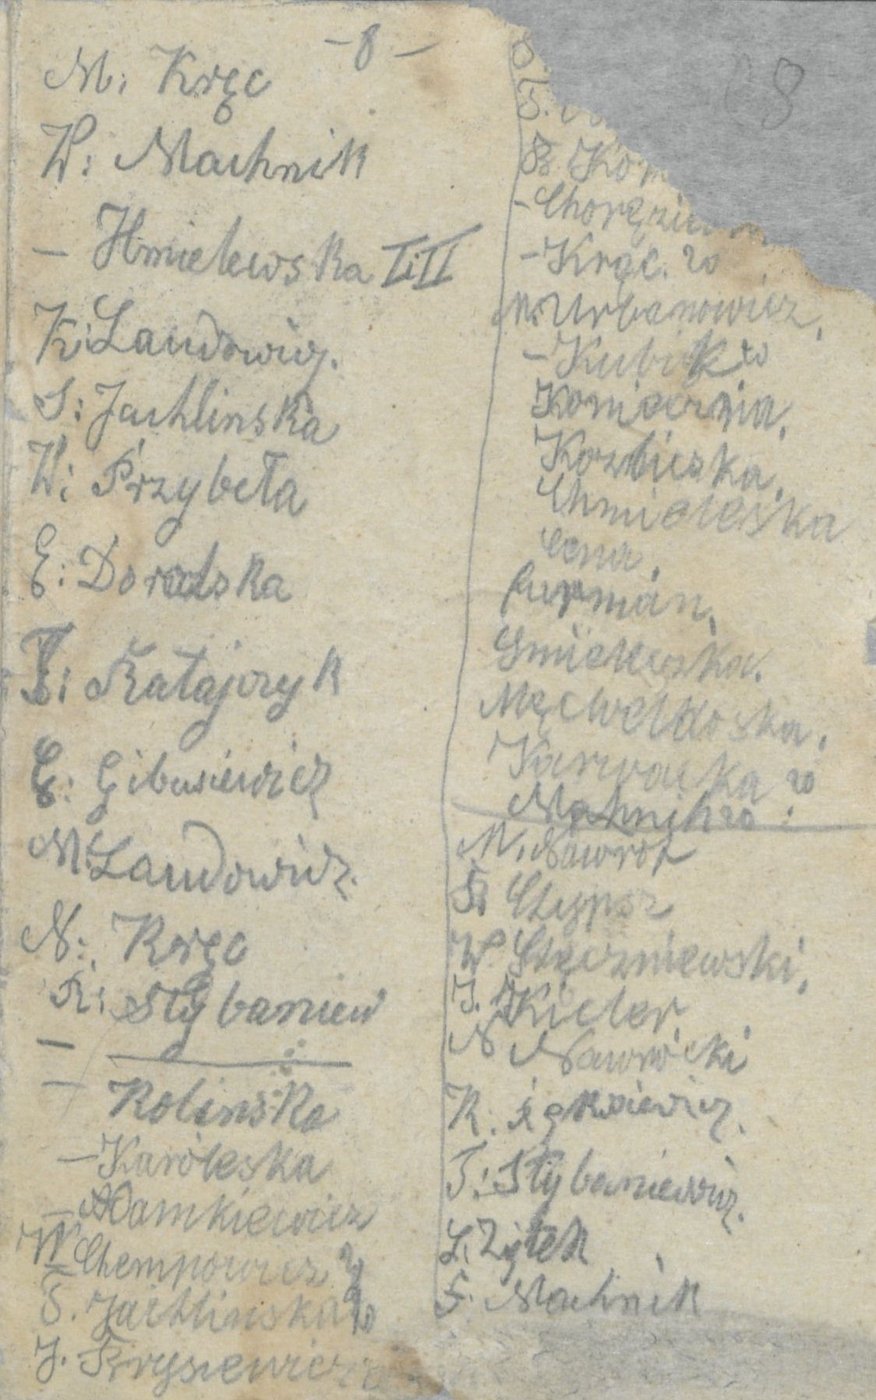 - 8 -
M: Kręc
W: Machnik
- Hmielewska I i II
K: Landowicz.
S: Jachlinska
W: Przybeła
E: Doradska
T: Ratajczyk
E: Gibasiewicz
M. Landowicz.
N: Kręc
R: Stybaniew
- Kolinska
- Karoleska
- Adamkiewicz
W Chempowicz
S. Jachlinska
J. Krysiewicz
- Kręc. 20
M. Urbanowicz,
- Kubik
Komierna,
Kozbieska,
Chmieleska
Cena,
Furmán,
Gmielewska.
Męcwełdoska,
Karwacka 20
Mahnik 20
M. Nawrot
Czypsz
W. Stęczniewski,
J. Kieler,
N Nawrócki
R. 
T: Stybaniewicz.
L. Zyłek
F. Machnik